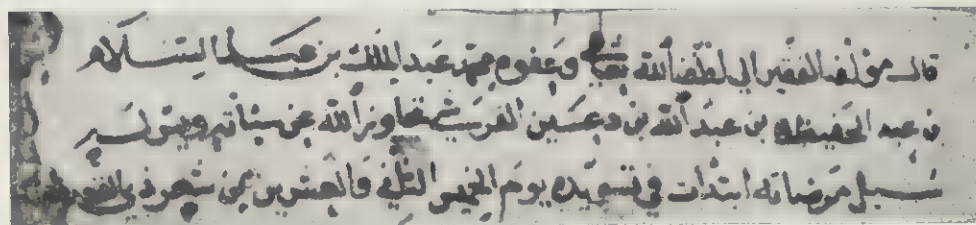 قال مؤلفه الفقير الى لطف الله تعالى وعفوه محمد عبد الملك بن عبد السلام
بن عبد الحفيظ بن عبد الله بن دعسين القرشي تجاوز الله عن سيئاته ويسر له
سبيل مرضاته ابتدأت في تسويده يوم الخميس الثاني والعشرين من شهر ذي القعدة